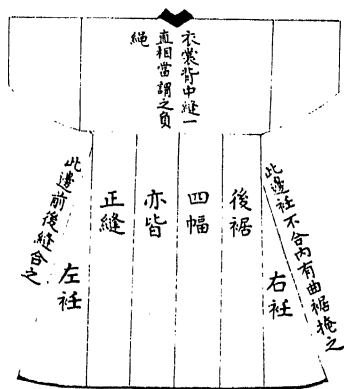 衣裳背中縫一
直相當謂之負
繩
此邊衽不合內有曲裾掩之
右衽
後裾
四幅
亦皆
正縫
左衽
此邊前後縫合之